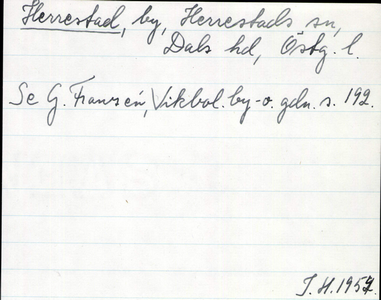 Herrestad, by, Herrestads sn,
Dals hd, Östg. l.
Se G. Franzén, Vikbol. by- o. gdn. s. 192.
J. H. 1957.